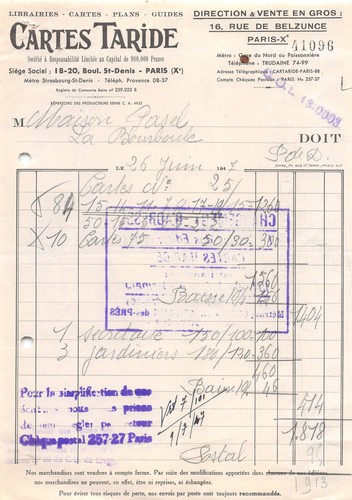 LIBRAIRIES - CARTES - PLANS - GUIDES
CARTES TARIDE
Société à Responsabilité Limitée au Capital de 980.000 Francs
Siège Social : 18-20, Boul. St-Denis - PARIS (Xe)
Métro Strasbourg-St-Denis - Téléph. Provence 08-37
Registre du Commerce Seine n° 259-223 B
RÉPERTOIRE DES PRODUCTEURS SEINE C. A. 4932
DIRECTION & VENTE EN GROS :
16, RUE DE BELZUNCE
PARIS-Xe
41096
Métro : Gare du Nord ou Poissonnière
Téléphone : TRUDAINE 74-99
Adresse Télégraphique : CARTARIDE-PARIS-88
Compte Chèques Postaux : PARIS, No 257-27
M Maison Pasel
La Bourboule
DOIT
LE 26 Juin 1947
Cartes No 25/
84 15-14-14-7-12-17-19/15=1260
X 10 Cartes 75 50/30=300
1560
Baisse 10% 156
1404
1 secrétaire 150/100-100
3 jardiniers 180/120-360
460
Baisse 10% 46
414
1,818
Postal 95
1913
Pour la simplification de nos
nous vous prions
de nous régler par retour
Chèque postal 257-27 Paris
Nos marchandises sont vendues à compte ferme. Par suite des modifications apportées dans chacune de nos éditions
nos marchandises ne peuvent, en effet, être ni reprises, ni échangées.
Pour éviter tous risques de perte, nos envois par poste sont toujours recommandés.